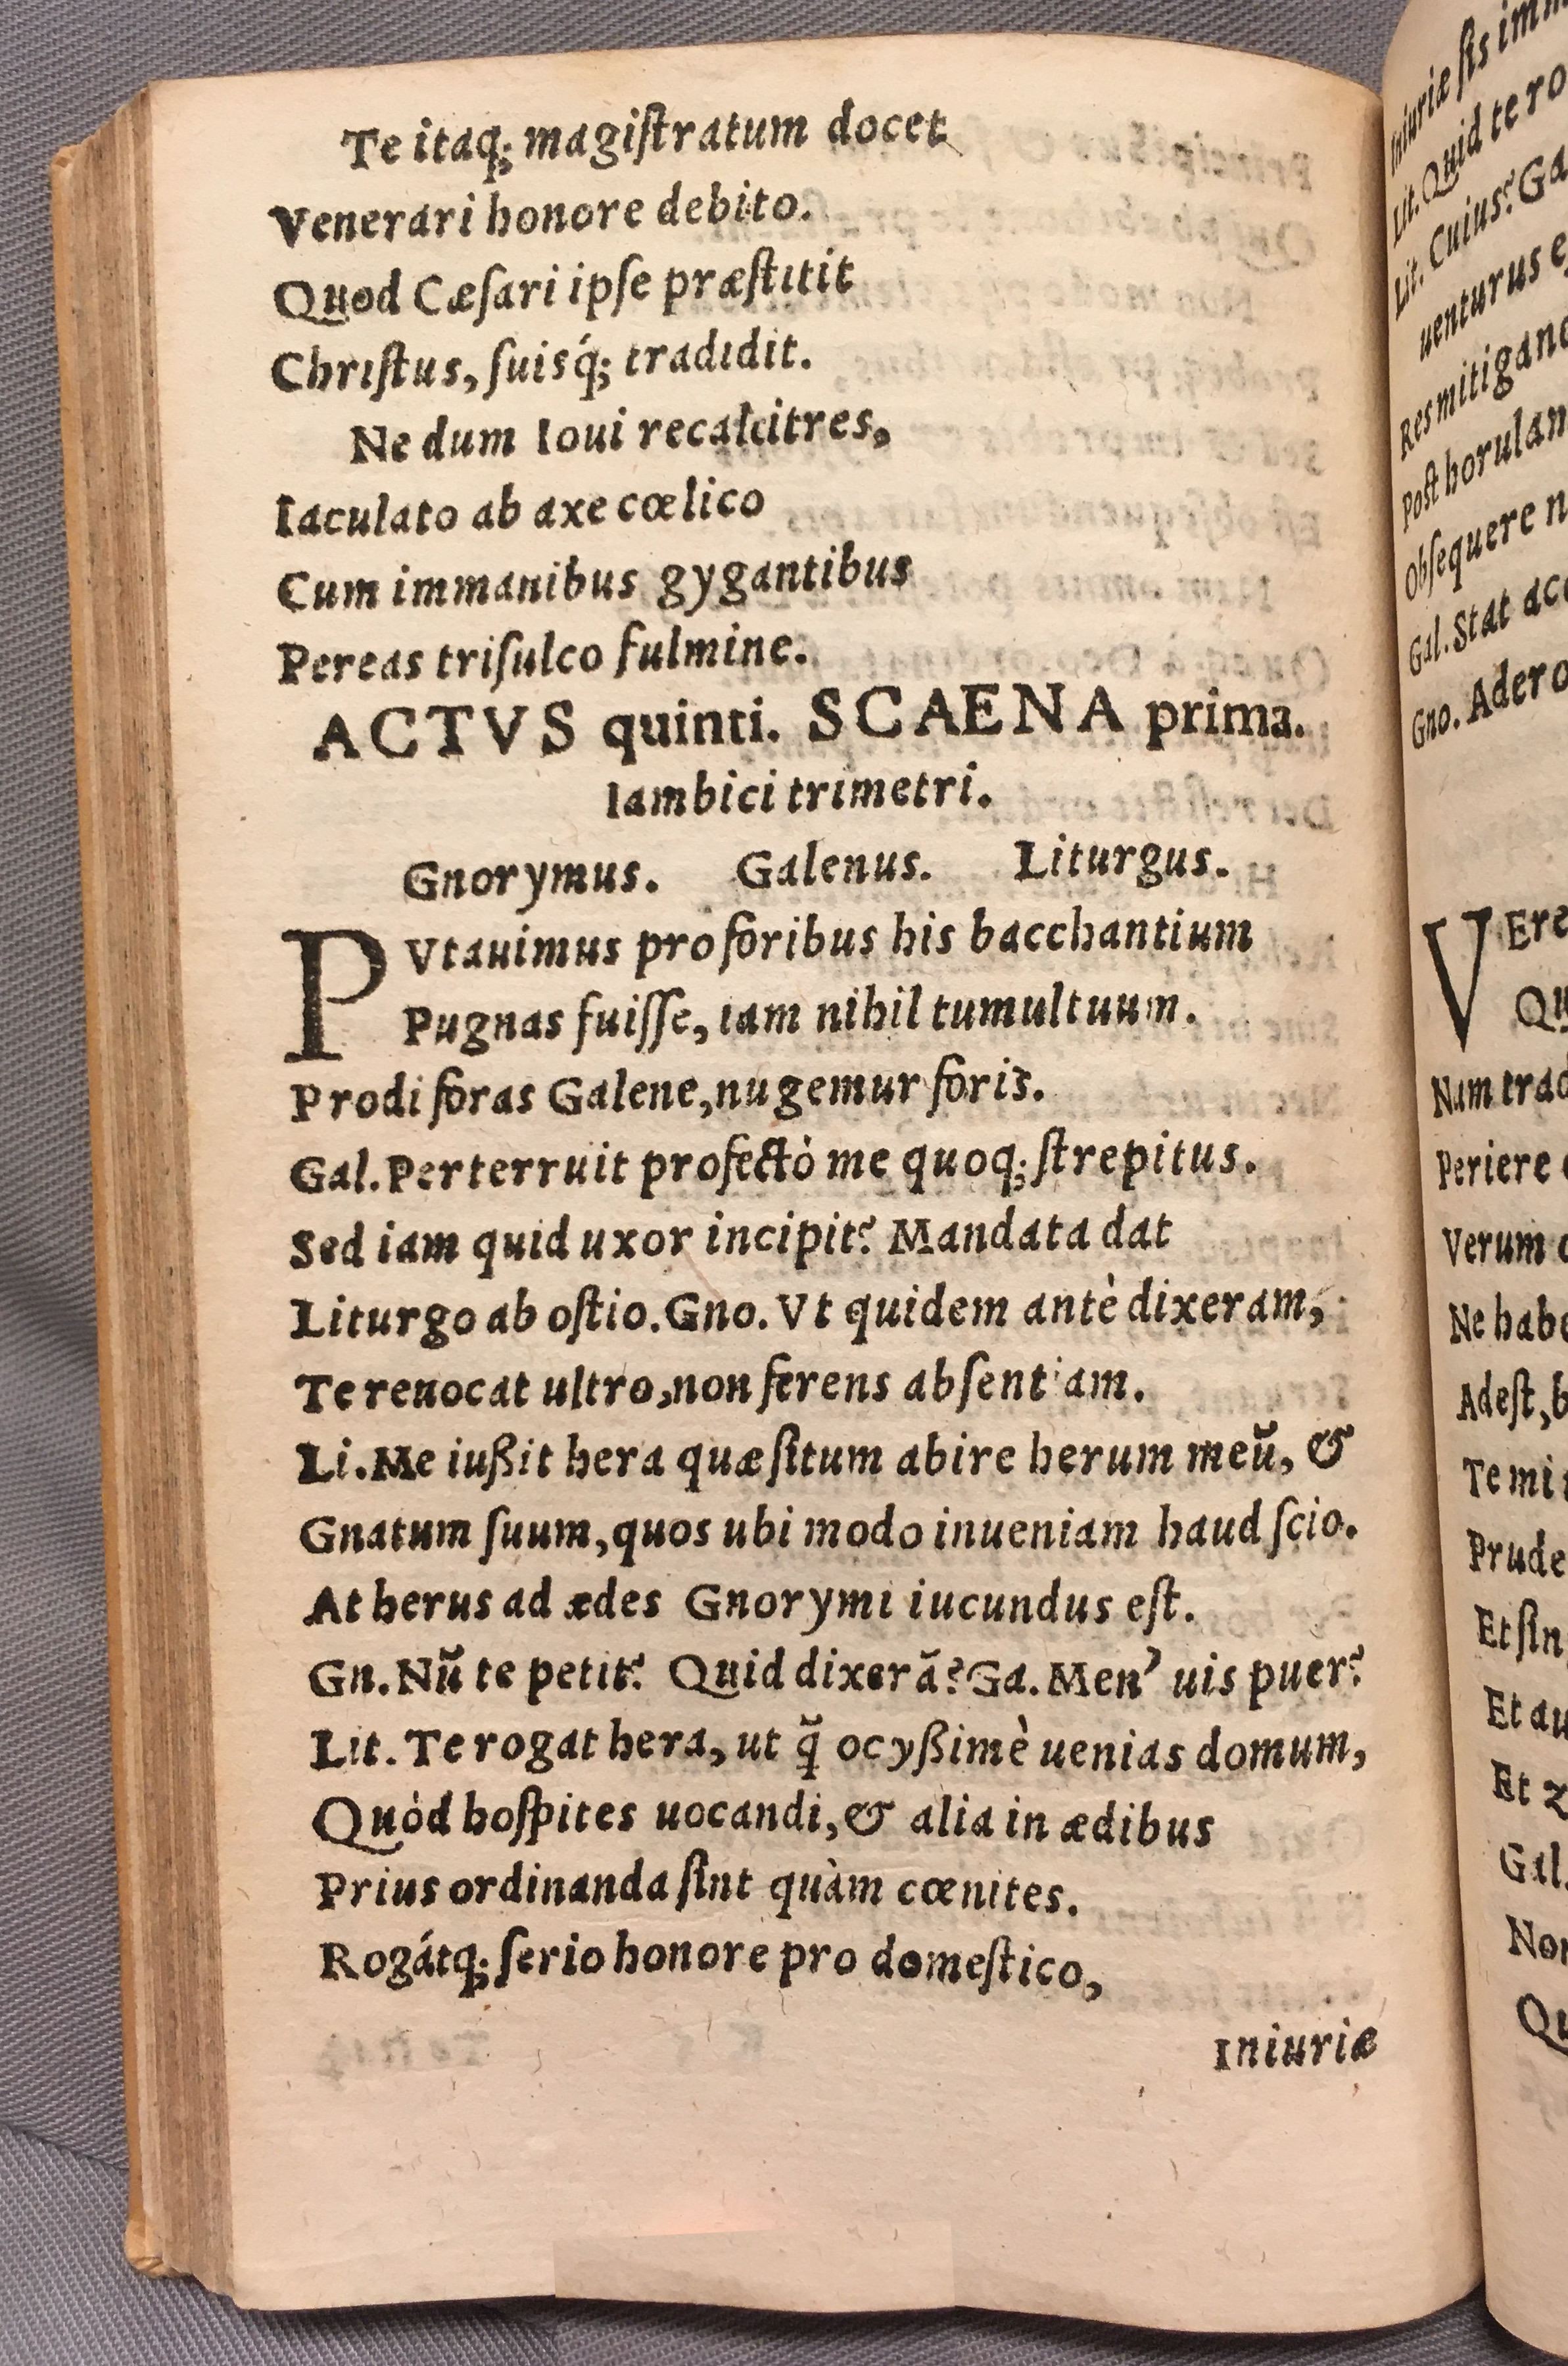 Te itaq; magiſtratum docet
Venerari honore debito.
Quod Cæſari ipſe præſtitit
Chriſtus, ſuisq́; tradidit.
Ne dum Ioui recalcitres,
Iaculato ab axe cœlico
Cum immanibus gygantibus
Pereas triſulco fulmine.
ACTVS quinti. SCAENA prima.
Iambici trimetri.
Gnorymus. Galenus. Liturgus.
PVtauimus pro foribus his bacchantium
Pugnas fuiſſe, iam nihil tumultuum.
Prodi foras Galene, nugemur foris.
Gal. Perterruit profectò me quoq; ſtrepitus.
Sed iam quid uxor incipit? Mandata dat
Liturgo ab oſtio. Gno. Vt quidem antè dixeram,
Te reuocat ultro, non ferens abſentiam.
Li. Me iußit hera quæſitum abire herum meũ, &
Gnatum ſuum, quos ubi modo inueniam haud ſcio.
At herus ad ædes Gnorymi iucundus eſt.
Gn. Nũ te petit? Quid dixerã? Ga. Men' uis puer?
Lit. Te rogat hera, ut q̃ ocyßimè uenias domum,
Quòd hoſpites uocandi, & alia in ædibus
Prius ordinanda ſint quàm cœnites.
Rogátq; ſerio honore pro domeſtico,
Iniuriæ
Iniuriæ ſis
Lit. Quid te
Lit. Cuius?
uenturus
Poſt
Obſequere
Gal. Stat
Gno.
VEre
Nam
Periere
Verum
Ne
Adeſt,
Te mi
Et
Et
Et
Gal.